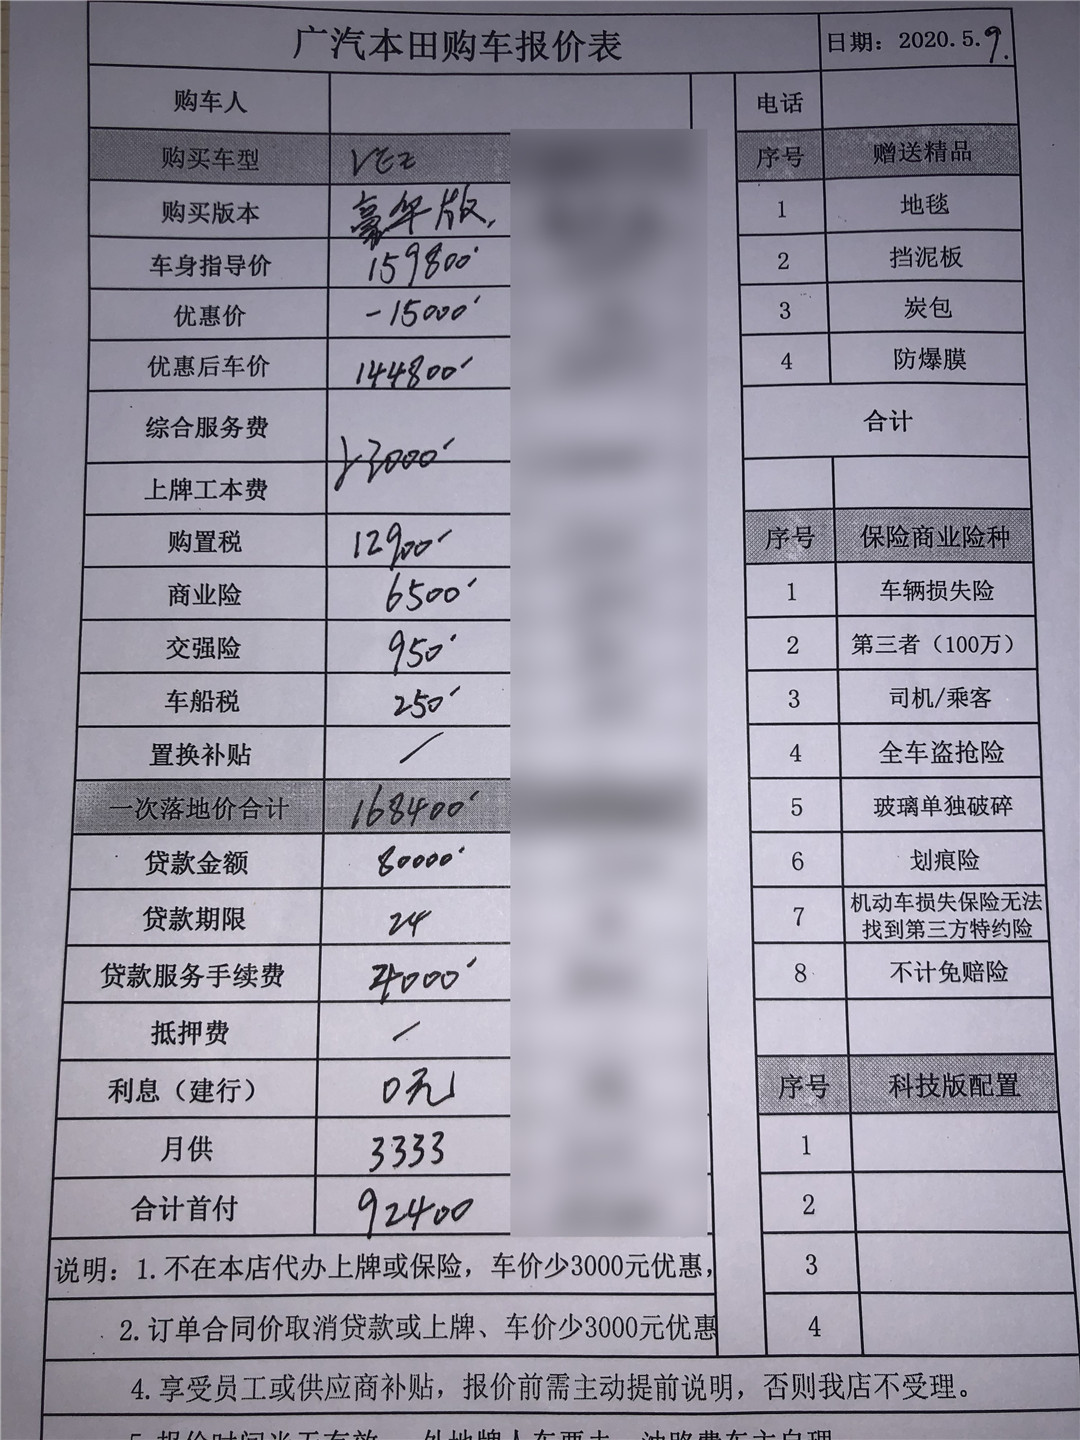 广汽本田购车报价表 日期：2020.5.9.
购车人 电话
购买车型 VEZ 序号 赠送精品
购买版本 豪华版. 1 地毯
车身指导价 159800 2 挡泥板
优惠价 -15000 3 炭包
优惠后车价 144800 4 防爆膜
综合服务费 合计
3000
上牌工本费
购置税 12900 序号 保险商业险种
商业险 6500 1 车辆损失险
交强险 950 2 第三者（100万）
车船税 250 3 司机/乘客
置换补贴 / 4 全车盗抢险
一次落地价合计 168400 5 玻璃单独破碎
贷款金额 80000 6 划痕险
贷款期限 24 7 机动车损失保险无法
找到第三方特约险
贷款服务手续费 4000 8 不计免赔险
抵押费 /
利息（建行） 0元 序号 科技版配置
月供 3333 1
合计首付 92400 2
说明：1.不在本店代办上牌或保险，车价少3000元优惠， 3
2.订单合同价取消贷款或上牌、车价少3000元优惠 4
4.享受员工或供应商补贴，报价前需主动提前说明，否则我店不受理。